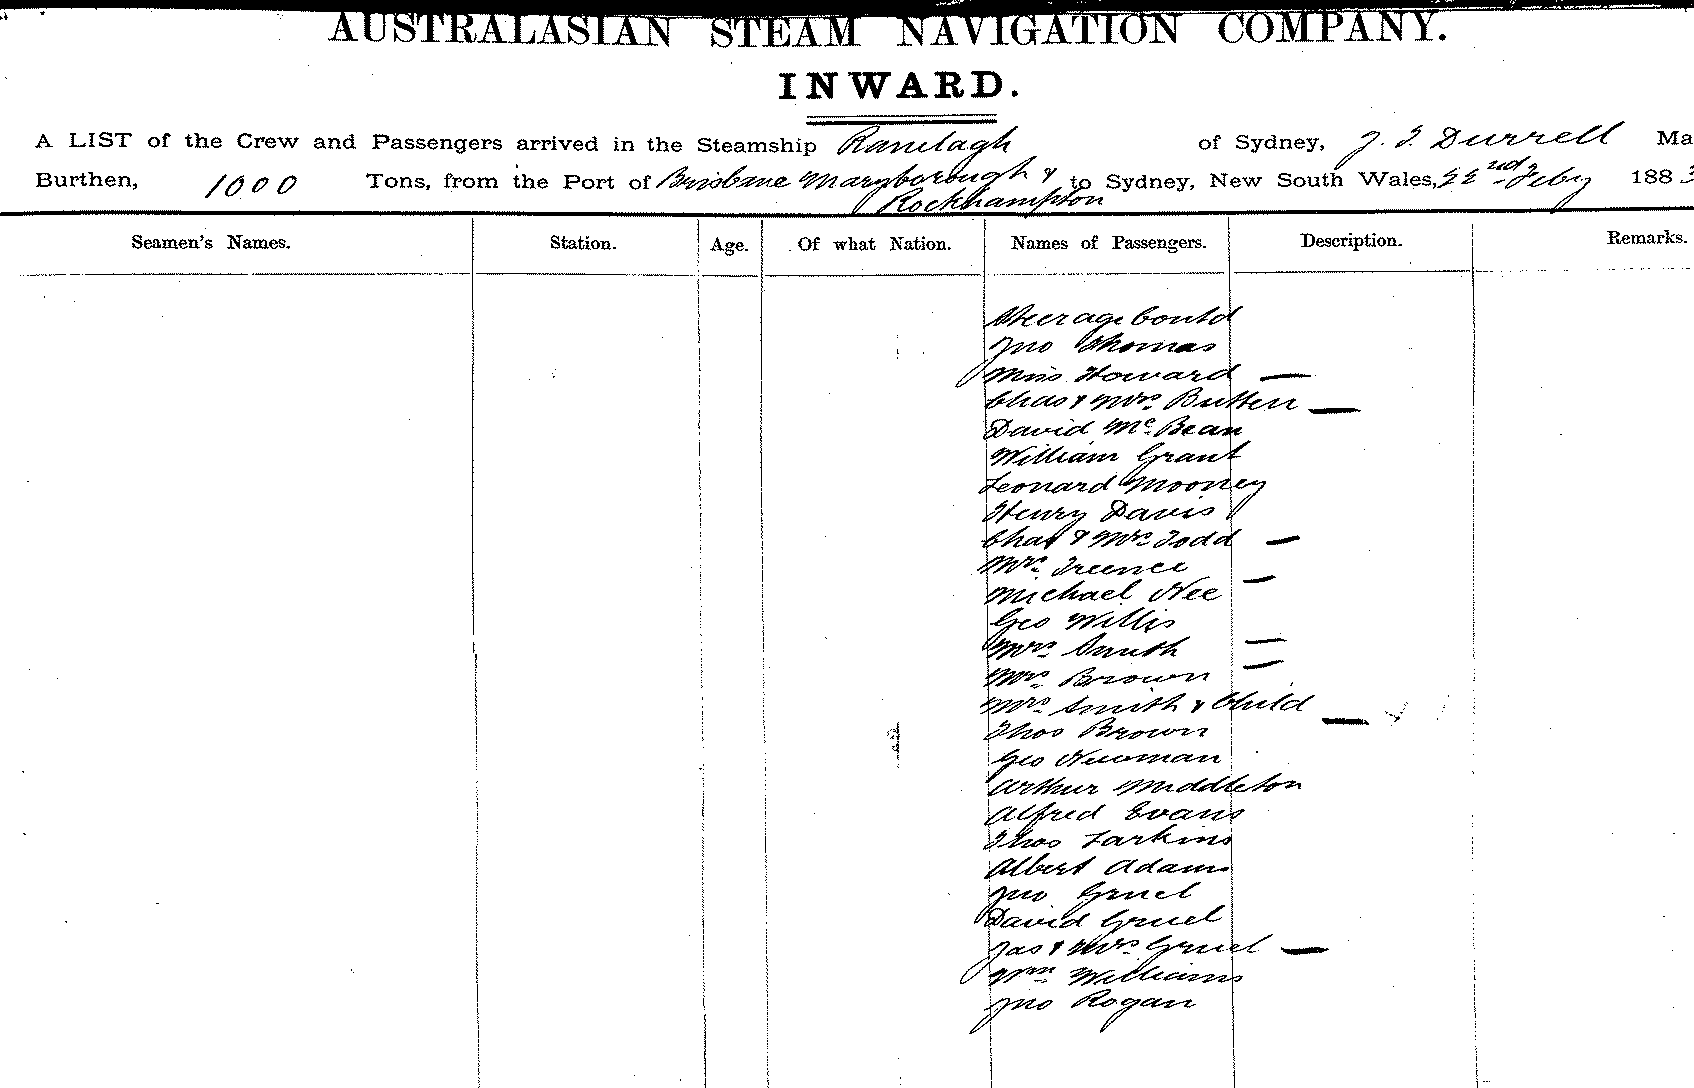 AUSTRALASIAN STEAM NAVIGATION COMPANY.
INWARD.
A LIST of the Crew and Passengers arrived in the Steamship Ranelagh of Sydney, J. S. Durrell Ma
Burthen, 1000 Tons, from the Port of Brisbane Maryborough & to Sydney, New South Wales, 22nd Feby 1883
Rockhampton
Seamen's Names. Station. Age. Of what Nation. Names of Passengers. Description. Remarks.
Steerage Contd
Jno Thomas
Miss Howard —
Chas & Mrs Butten —
David McBean
William Grant
Leonard Mooney
Henry Davis
Chas & Mrs Todd —
Mrs Treence —
Michael Nee
Geo Willis
Mrs Smith —
Mrs Brown —
Mrs Smith & Child —
Thos Brown
Geo Newman
Arthur Middleton
Alfred Evans
Thos Larkins
Albert Adams
Jno Gruel
David Gruel
Jas & Mrs Gruel —
Wm Williams
Jno Rogan